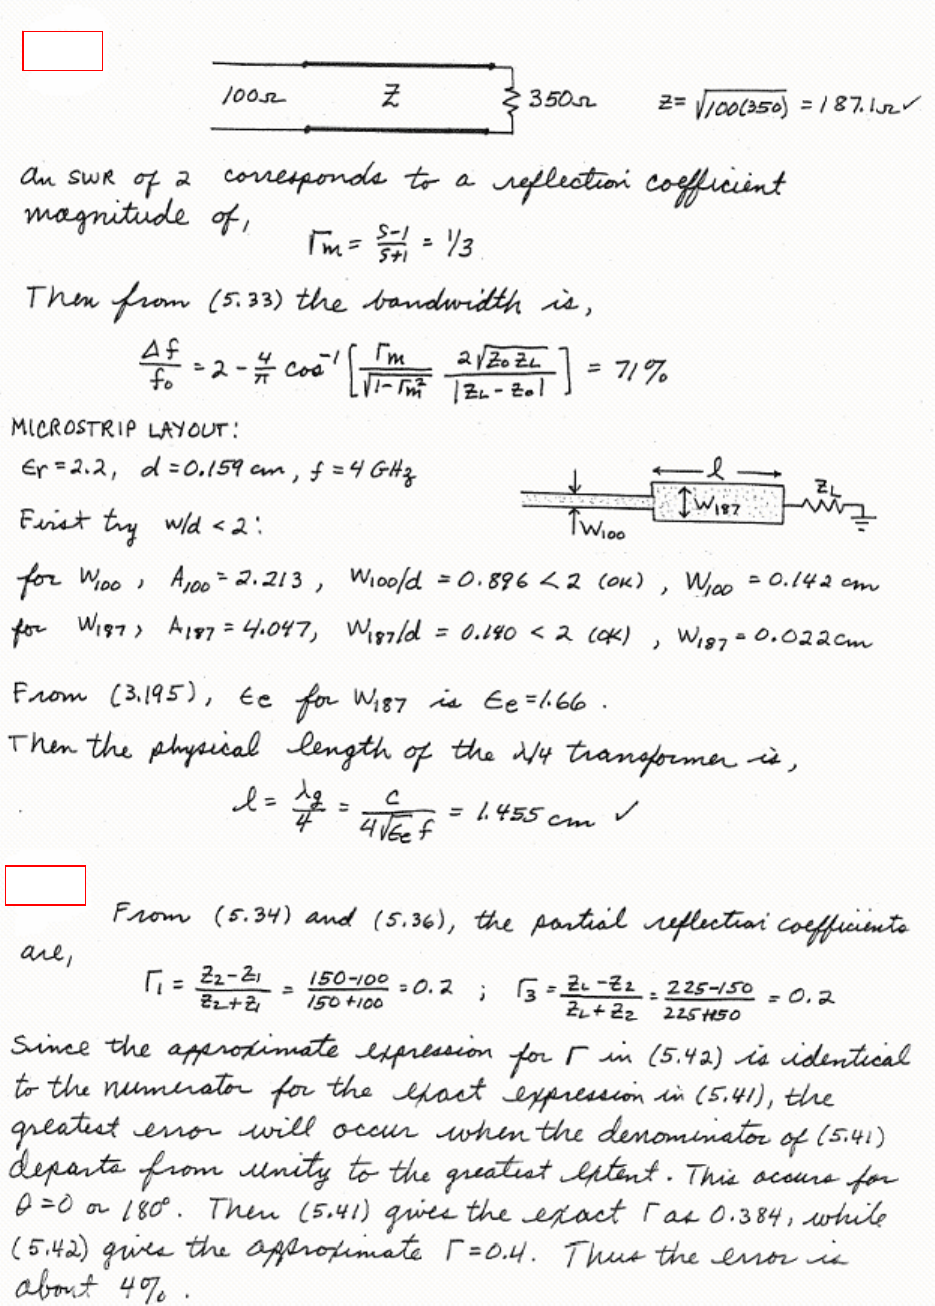 100Ω Z 350Ω Z = √100(350) = 187.1Ω ✓
An SWR of 2 corresponds to a reflection coefficient
magnitude of,
Γm = (S-1)/(S+1) = 1/3
Then from (5.33) the bandwidth is,
Δf/f₀ = 2 - 4/π cos⁻¹ [ Γm/√(1-Γm²) 2√(Z₀ZL)/|ZL-Z₀| ] = 71%
MICROSTRIP LAYOUT:
εr = 2.2, d = 0.159 cm, f = 4 GHz
l
ZL
W187
W100
First try w/d < 2:
for W100, A100 = 2.213, W100/d = 0.896 < 2 (OK), W100 = 0.142 cm
for W187, A187 = 4.047, W187/d = 0.140 < 2 (OK), W187 = 0.022 cm
From (3.195), εe for W187 is εe = 1.66.
Then the physical length of the λ/4 transformer is,
l = λg/4 = c/(4√εe f) = 1.455 cm ✓
From (5.34) and (5.36), the partial reflection coefficients
are,
Γ₁ = (Z₂-Z₁)/(Z₂+Z₁) = (150-100)/(150+100) = 0.2 ; Γ₃ = (ZL-Z₂)/(ZL+Z₂) = (225-150)/(225+150) = 0.2
Since the approximate expression for Γ in (5.42) is identical
to the numerator for the exact expression in (5.41), the
greatest error will occur when the denominator of (5.41)
departs from unity to the greatest extent. This occurs for
θ = 0 or 180°. Then (5.41) gives the exact Γ as 0.384, while
(5.42) gives the approximate Γ = 0.4. Thus the error is
about 4%.